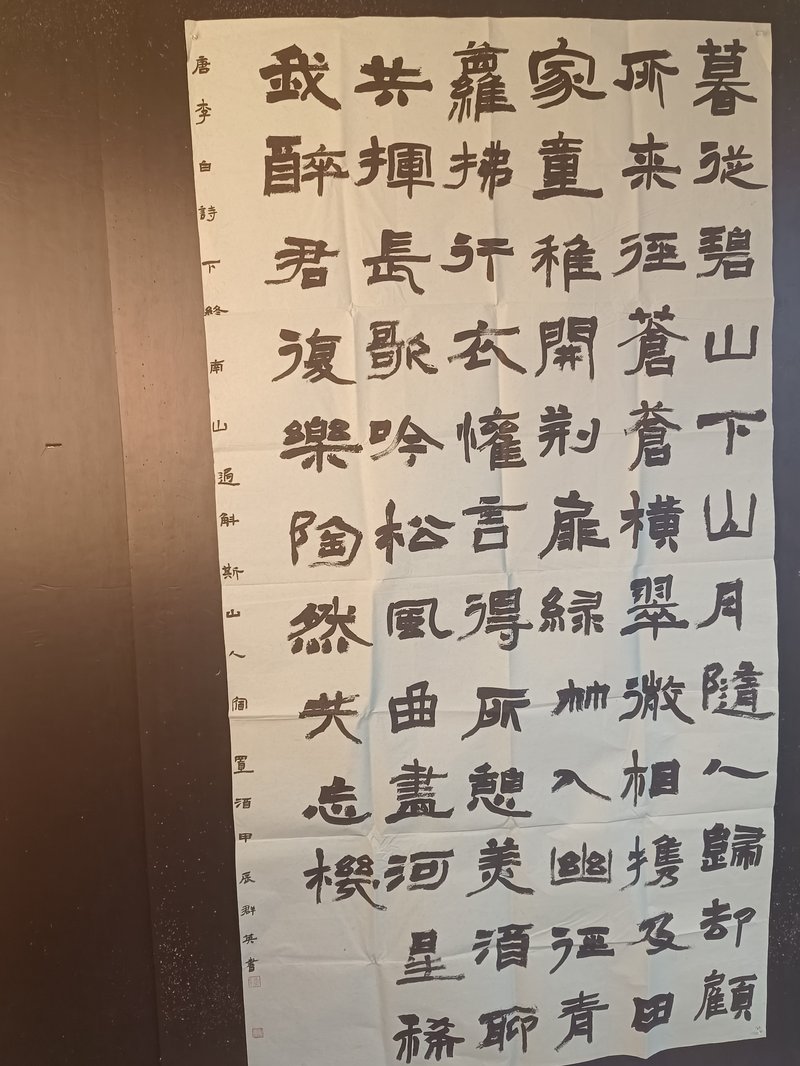 暮從碧山下山月隨人歸却顧
所来徑蒼蒼橫翠微相携及田
家童稚開荆扉緑竹入幽徑青
蘿拂行衣懽言得所憩美酒聊
共揮長歌吟松風曲盡河星稀
我醉君復樂陶然共忘機
唐李白詩下終南山過斛斯山人宿置酒甲辰群英書